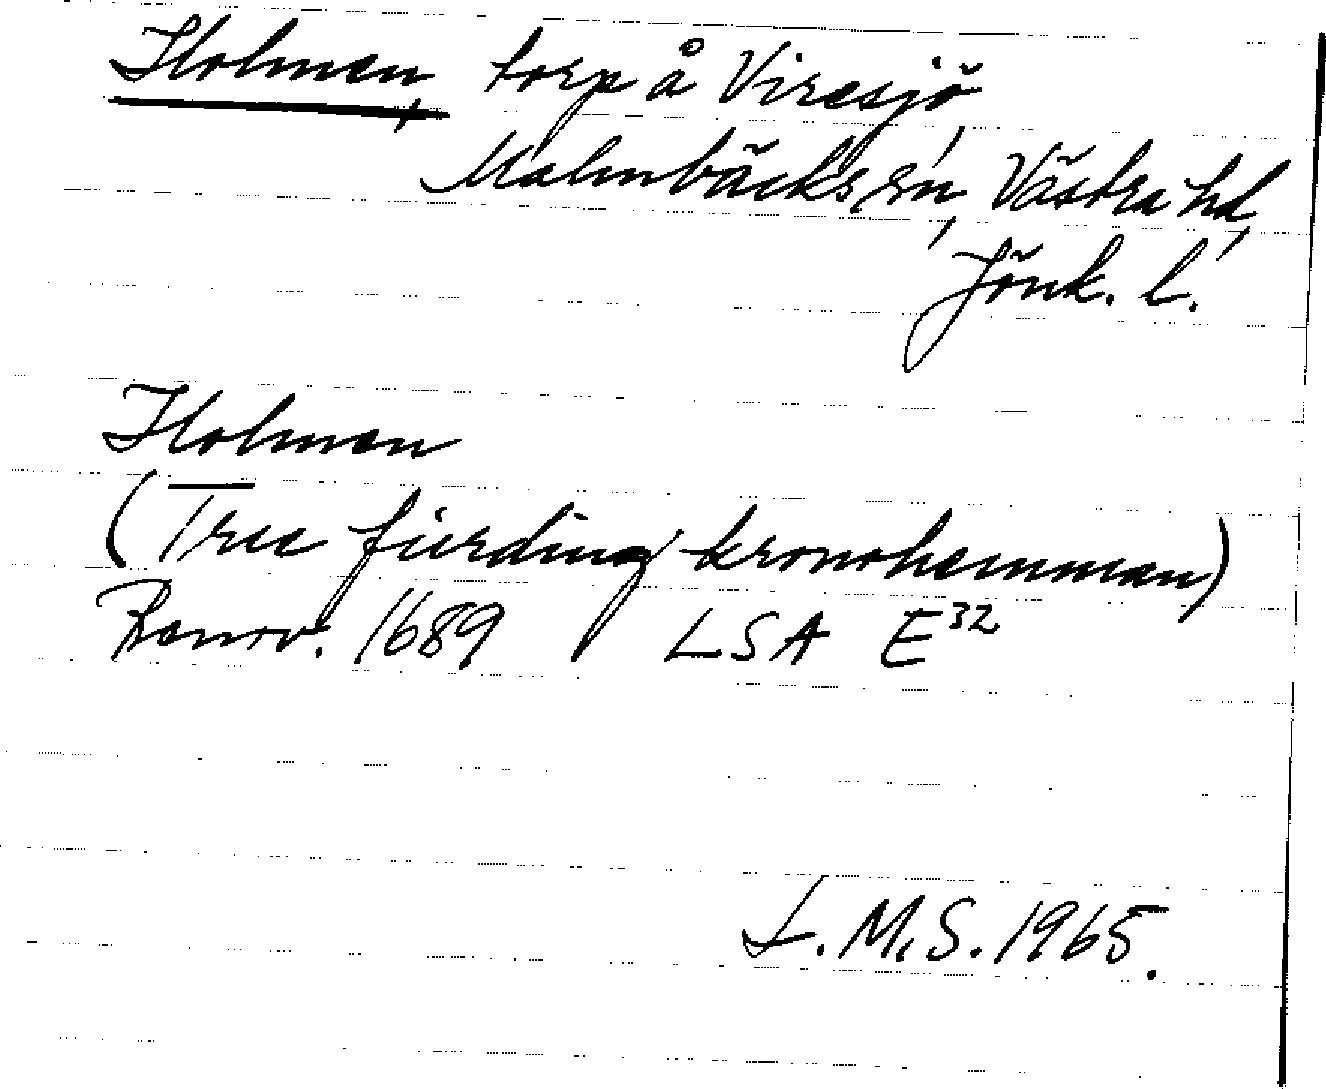 Holmen, torp å Viresjö,
Malmbäcks sn, Västra hd,
Jönk. l.
Holmen
(Tree fierding kronohemman)
Renov. 1689 LSA E32
L.M.S. 1965.